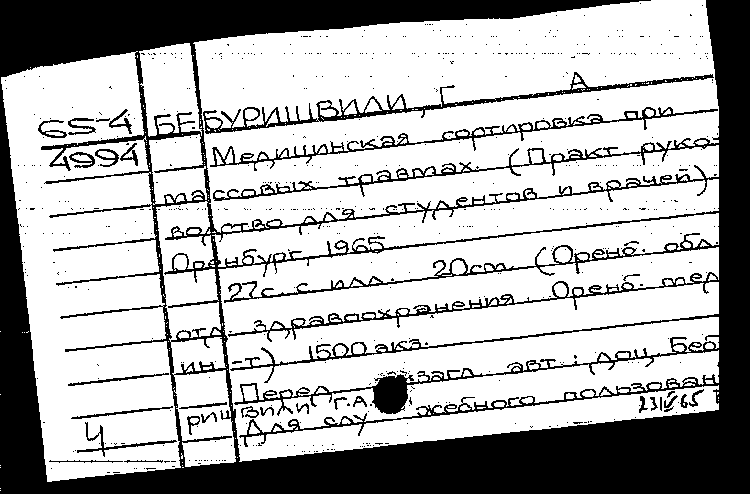 65-4 БЕБУРИШВИЛИ, Г А
4994 Медицинская сортировка при
массовых травмах. (Практ руко-
водство для студентов и врачей).
Оренбург, 1965
27с. с илл. 20см. (Оренб. обл.
отд. здравоохранения. Оренб. мед
ин-т). 1500 экз.
Перед загл. авт: доц. Беб
ришвили Г.А.
Ч Для служебного пользован